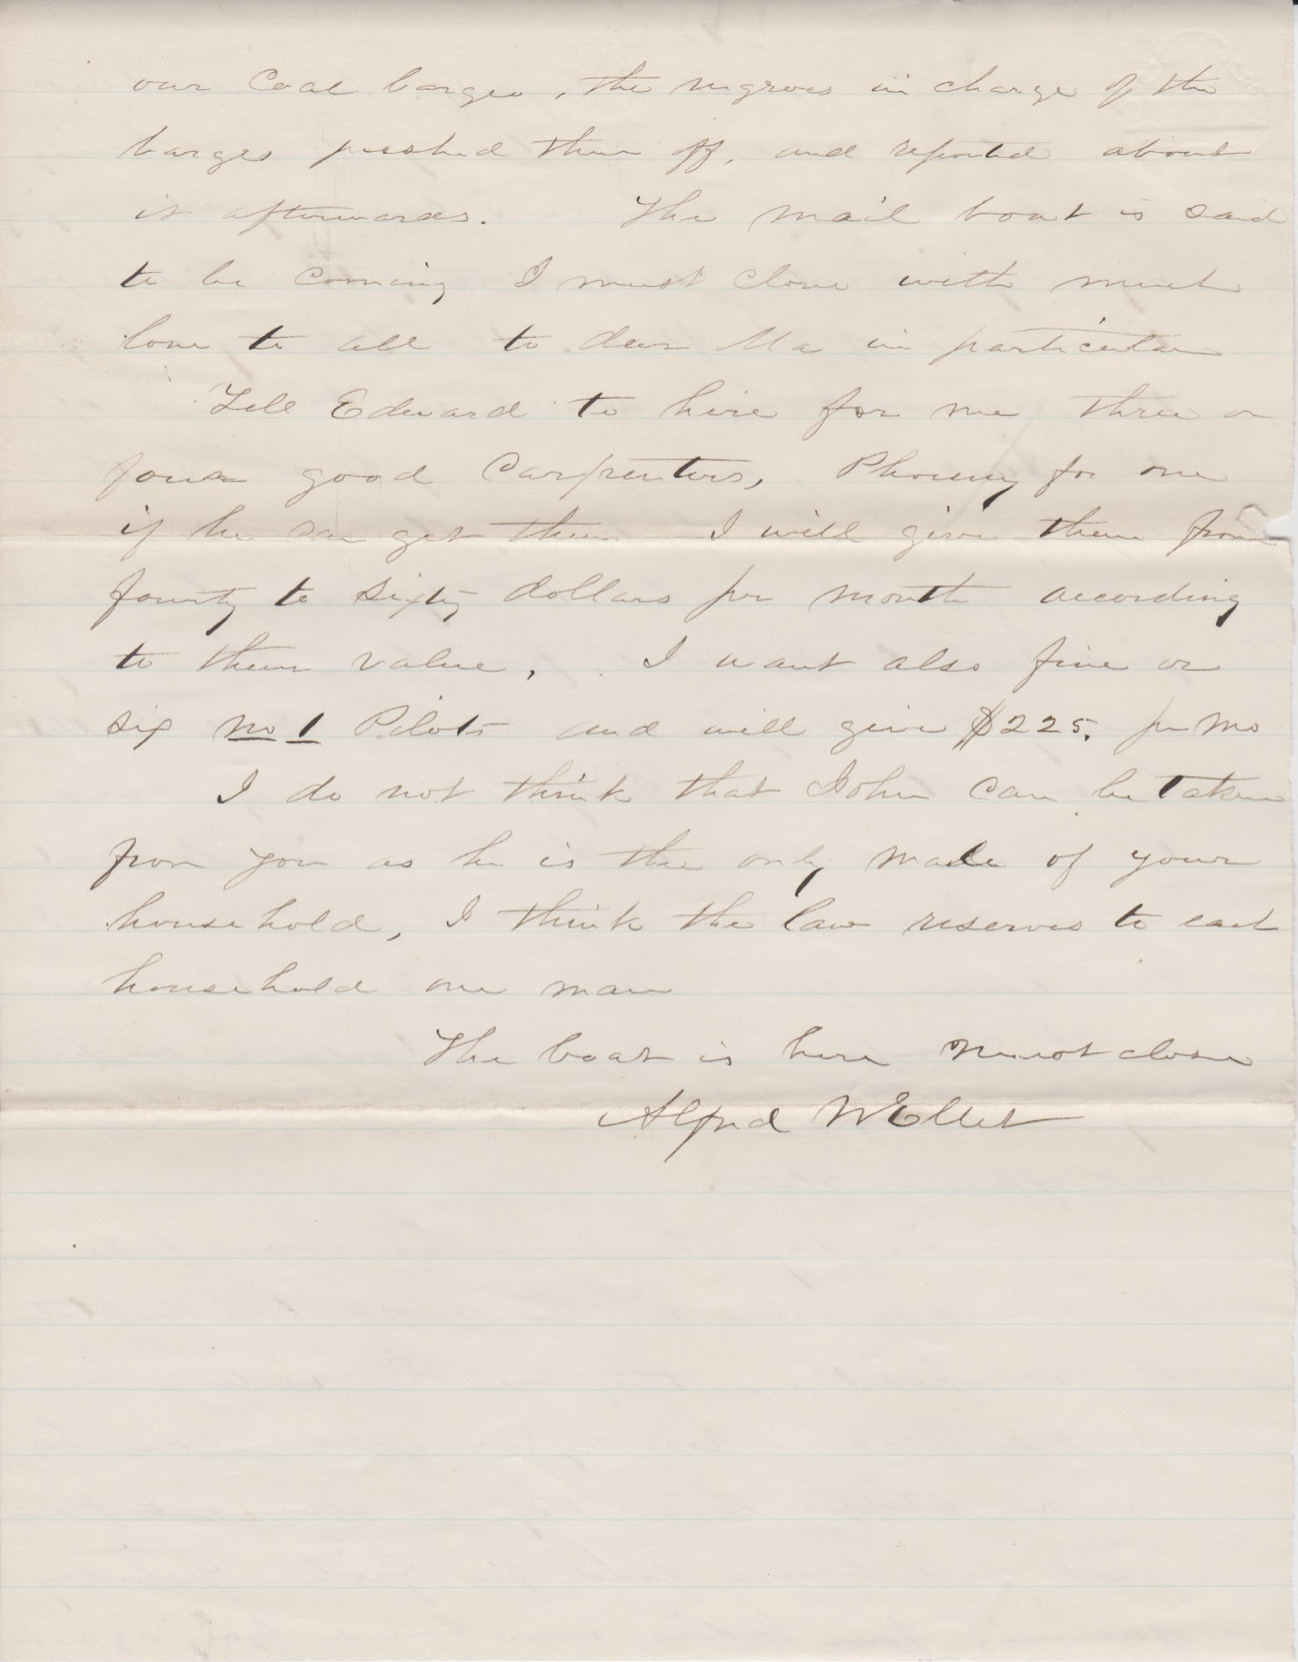 our Coal barges, the negroes in charge of the
barges pushed them off, and reported about
it afterwards. The mail boat is said
to be coming I must close with much
love to all to dear Ma in particular
Tell Edward to hire for me three or
four good Carpenters, for one
if he can get them I will give them from
fourty to sixty dollars per month according
to their value. I want also five or
six no 1 Pilots and will give $225. per Mo
I do not think that John can be taken
from you as he is the only male of your
household, I think the law reserves to each
household one man
The boat is here must close
Alfred W Ellet